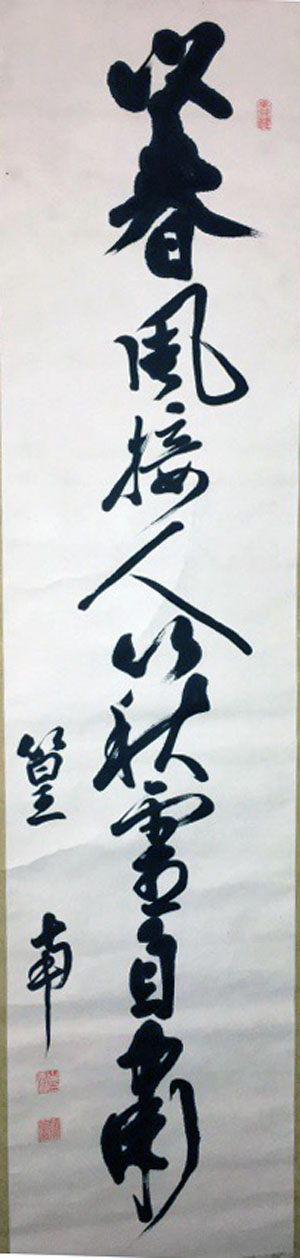 以春風接人以秋霜自粛
篁南